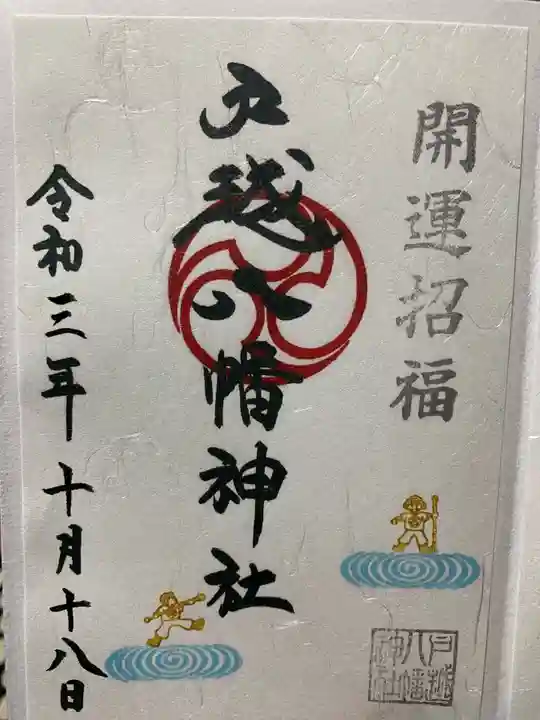 開運招福
戸越八幡神社
令和三年十月十八日
戸越
八幡
神社